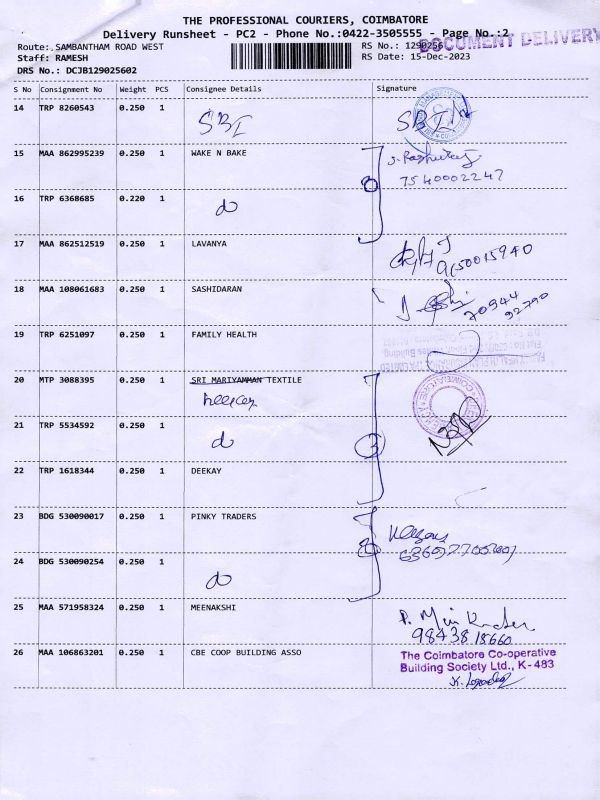 THE PROFESSIONAL COURIERS, COIMBATORE
Delivery Runsheet - PC2 - Phone No.:0422-3505555 - Page No.:2
DOCUMENT DELIVERY
Route: SAMBANTHAM ROAD WEST
RS No.: 1290256
Staff: RAMESH
RS Date: 15-Dec-2023
DRS No.: DCJB129025602
S No Consignment No Weight PCS Consignee Details Signature
14 TRP 8260543 0.250 1 SBI SBI
15 MAA 862995239 0.250 1 WAKE N BAKE
7540002247
16 TRP 6368685 0.220 1 do
17 MAA 862512519 0.250 1 LAVANYA
9150015940
18 MAA 108061683 0.250 1 SASHIDARAN
70944
92790
19 TRP 6251097 0.250 1 FAMILY HEALTH
20 MTP 3088395 0.250 1 SRI MARIYAMMAN TEXTILE
21 TRP 5534592 0.250 1 do
3
22 TRP 1618344 0.250 1 DEEKAY
23 BDG 530090017 0.250 1 PINKY TRADERS
24 BDG 530090254 0.250 1 do
25 MAA 571958324 0.250 1 MEENAKSHI
98438 18660
26 MAA 106863201 0.250 1 CBE COOP BUILDING ASSO
The Coimbatore Co-operative
Building Society Ltd., K-483